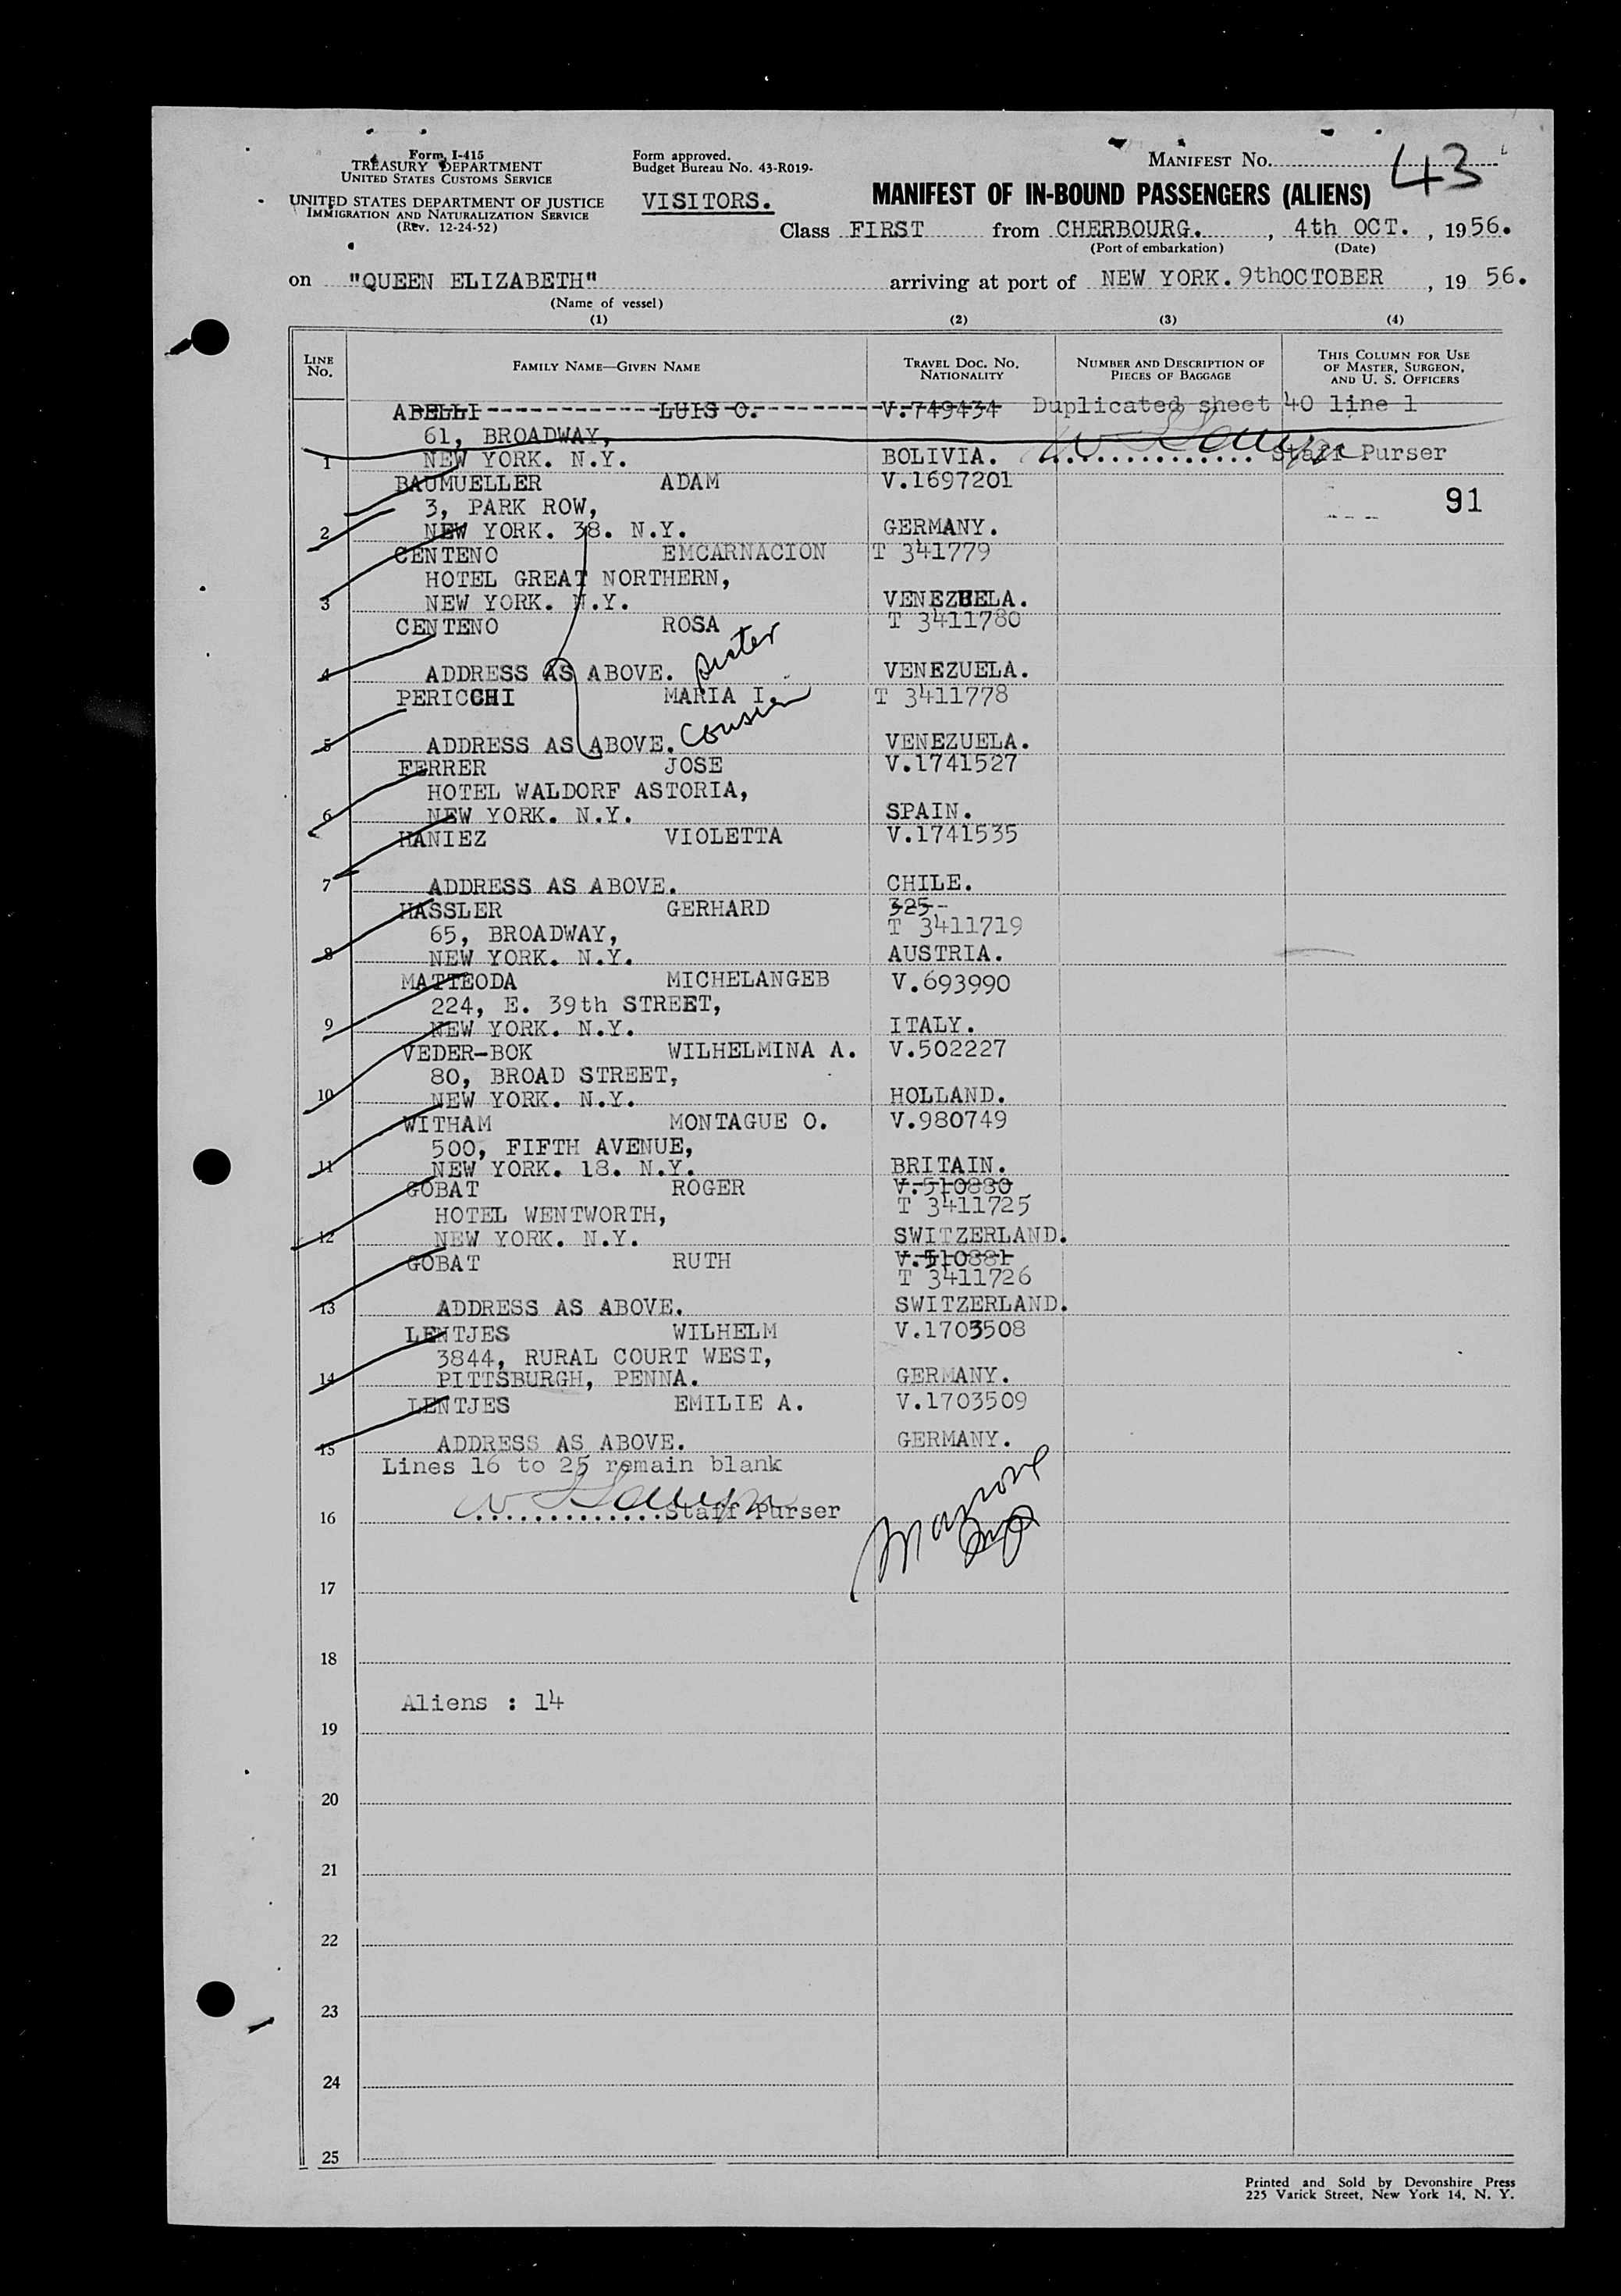 Form I-415
TREASURY DEPARTMENT
UNITED STATES CUSTOMS SERVICE
UNITED STATES DEPARTMENT OF JUSTICE
IMMIGRATION AND NATURALIZATION SERVICE
(Rev. 12-24-52)
Form approved.
Budget Bureau No. 43-R019-
VISITORS.
MANIFEST No. 43
MANIFEST OF IN-BOUND PASSENGERS (ALIENS)
Class FIRST from CHERBOURG. , 4th OCT. , 1956.
(Port of embarkation) (Date)
on "QUEEN ELIZABETH" arriving at port of NEW YORK. 9thOCTOBER , 19 56.
(Name of vessel)
(1) (2) (3) (4)
LINE No. FAMILY NAME—GIVEN NAME TRAVEL DOC. NO. NATIONALITY NUMBER AND DESCRIPTION OF PIECES OF BAGGAGE THIS COLUMN FOR USE OF MASTER, SURGEON, AND U. S. OFFICERS
ABELLI LUIS O. V.749434 Duplicated sheet 40 line 1
61, BROADWAY,
1 NEW YORK. N.Y. BOLIVIA. Staff Purser
BAUMUELLER ADAM V.1697201
3, PARK ROW, 91
2 NEW YORK. 38. N.Y. GERMANY.
CENTENO EMCARNACION T 341779
HOTEL GREAT NORTHERN,
3 NEW YORK. N.Y. VENEZUELA.
CENTENO ROSA T 3411780
sister
4 ADDRESS AS ABOVE. VENEZUELA.
PERICCHI MARIA I. T 3411778
cousin
5 ADDRESS AS ABOVE. VENEZUELA.
FERRER JOSE V.1741527
HOTEL WALDORF ASTORIA,
6 NEW YORK. N.Y. SPAIN.
HANIEZ VIOLETTA V.1741535
7 ADDRESS AS ABOVE. CHILE.
HASSLER GERHARD 325--
65, BROADWAY, T 3411719
8 NEW YORK. N.Y. AUSTRIA.
MATTEODA MICHELANGEB V.693990
224, E. 39th STREET,
9 NEW YORK. N.Y. ITALY.
VEDER-BOK WILHELMINA A. V.502227
80, BROAD STREET,
10 NEW YORK. N.Y. HOLLAND.
WITHAM MONTAGUE O. V.980749
500, FIFTH AVENUE,
11 NEW YORK. 18. N.Y. BRITAIN.
GOBAT ROGER V.510880
HOTEL WENTWORTH, T 3411725
12 NEW YORK. N.Y. SWITZERLAND.
GOBAT RUTH V.510881
T 3411726
13 ADDRESS AS ABOVE. SWITZERLAND.
LENTJES WILHELM V.1703508
3844, RURAL COURT WEST,
14 PITTSBURGH, PENNA. GERMANY.
LENTJES EMILIE A. V.1703509
15 ADDRESS AS ABOVE. GERMANY.
Lines 16 to 25 remain blank
16 Staff Purser
17
18
Aliens : 14
19
20
21
22
23
24
25
Printed and Sold by Devonshire Press
225 Varick Street, New York 14, N. Y.